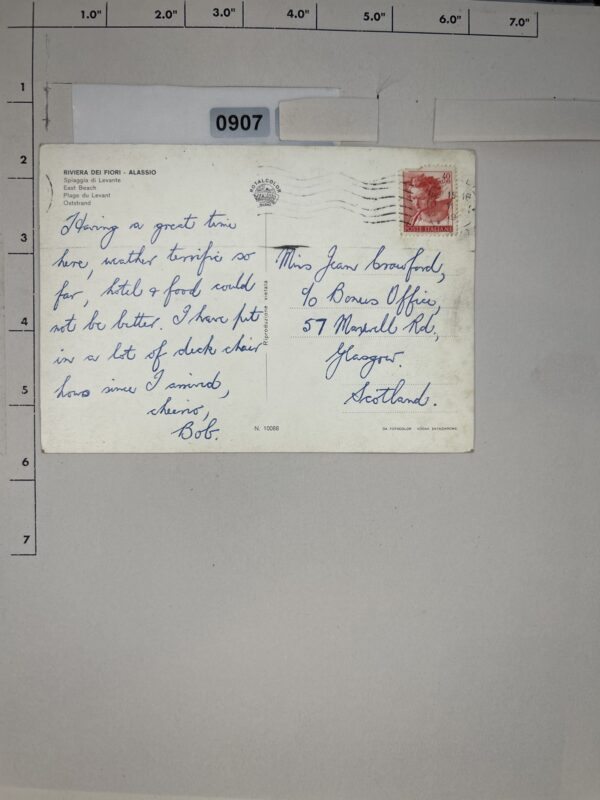 1.0" 2.0" 3.0" 4.0" 5.0" 6.0" 7.0"
1
2
3
4
5
6
7
0907
RIVIERA DEI FIORI - ALASSIO
Spiaggia di Levante
East Beach
Plage du Levant
Oststrand
ROTALCOLOR
POSTE ITALIANE
Having a great time
here, weather terrific so
far, hotel & food could
not be better. I have put
in a lot of deck chair
hours since I arrived,
cheerio,
Bob.
Riproduzione vietata
Miss Jean Crawford,
c/o Bonus Office,
57 Maxwell Rd,
Glasgow.
Scotland.
N. 10088
DA FOTOCOLOR KODAK EKTACHROME